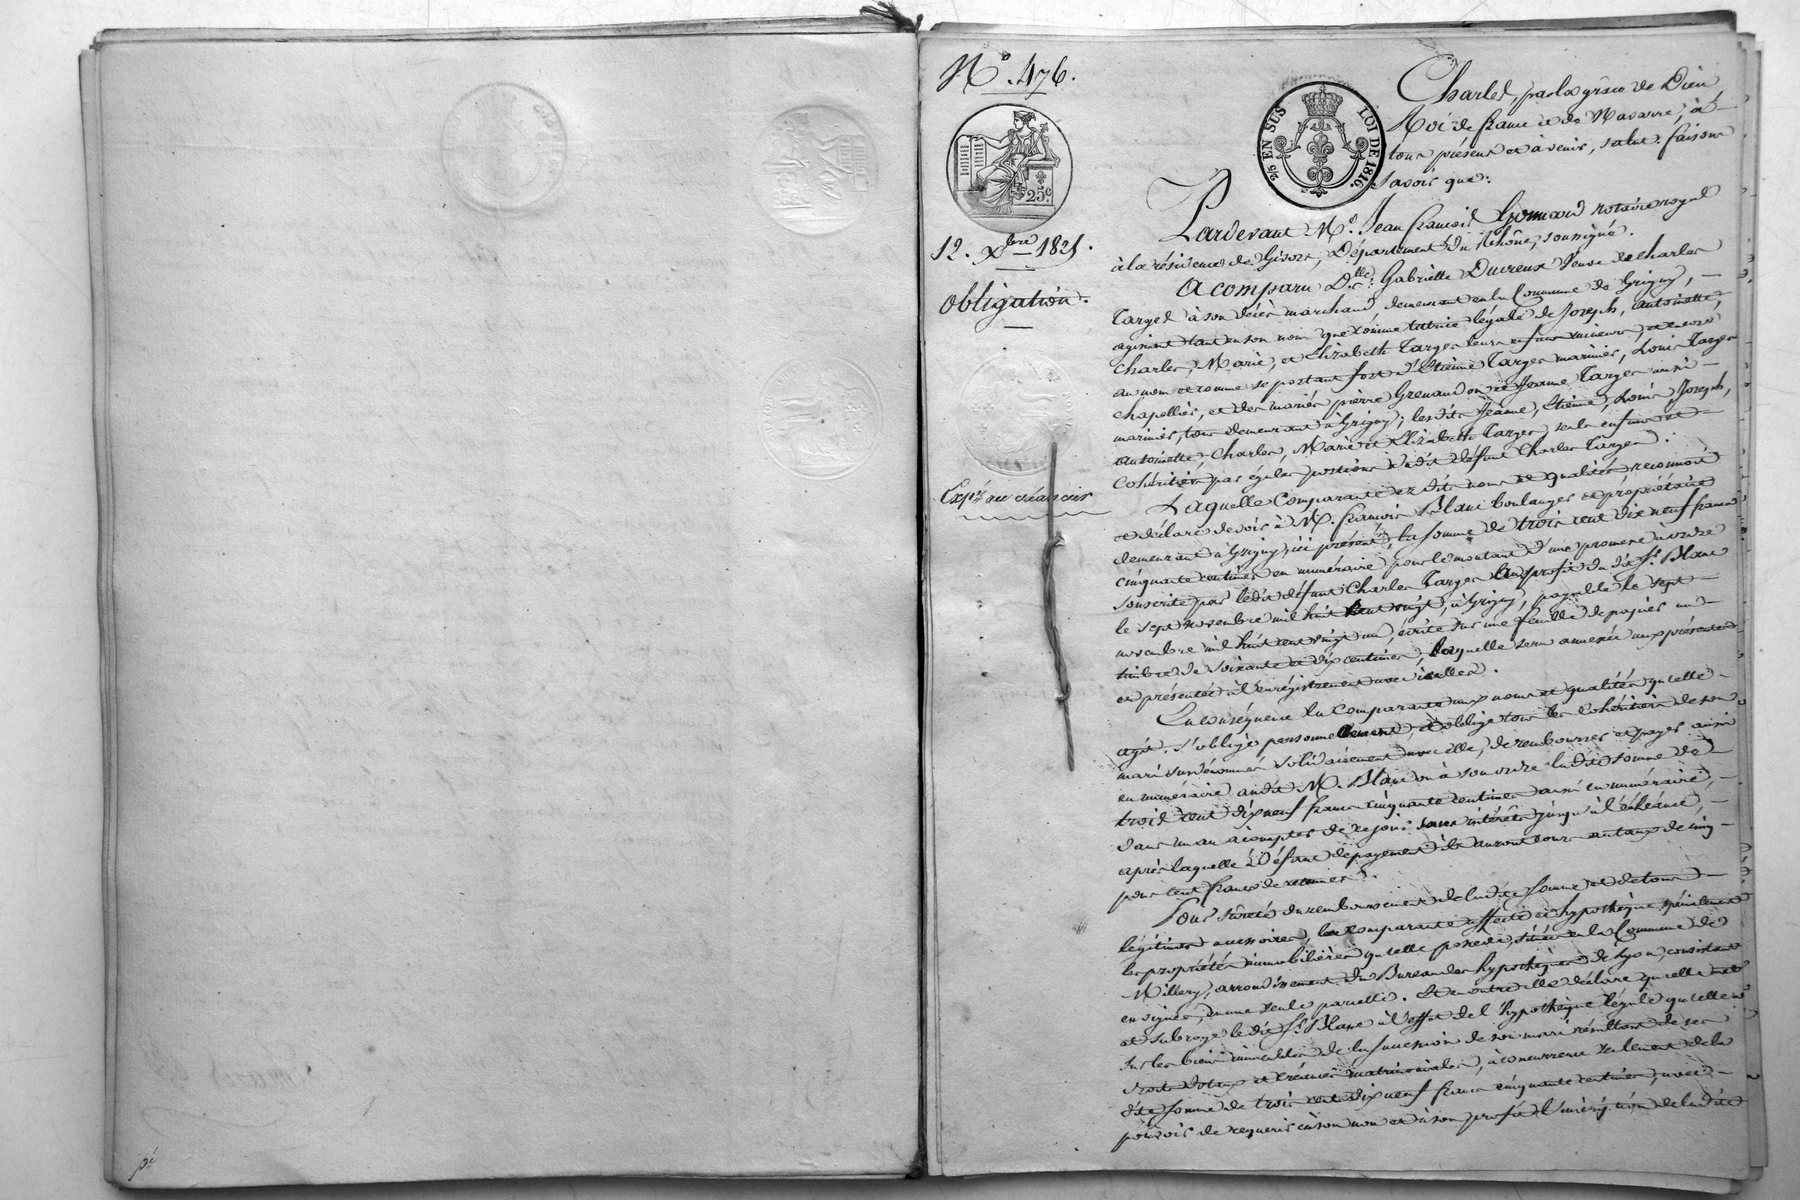 N.º 476.
25 c.
12. Xbre 1825.
obligation.
Exp.on au créancier
2/5 EN SUS LOI DE 1816.
Charles, par la grâce de Dieu
Roi de france et de Navarre, à
tous présens et à venir, salut. faisons
savoir que:
Pardevant M.e Jean françois Gonnard notaire royal
à la résidence de Givors, Département du Rhône, soussigné.
A comparu D.lle Gabrielle Ducreux Veuve de Charles
Targes à son décès marchand, demeurant en la Commune de Grigny,
agissant tant en son nom que comme tutrice légale de Joseph, antoinette,
Charles, Marie, et Elizabeth Targes leurs enfans mineurs, et encore
au nom et comme se portant fort d'Etienne Targes marinier, Louis Targes
chapellier, et des mariés pierre Grenaud et Jeanne Targes aussi
marinier, tous demeurant à Grigny; lesdits Jeanne, Etienne, Louis, Joseph,
antoinette, Charles, Marie et Elizabeth Targes seuls enfans et
cohéritiers par égales portions dudit défunt Charles Targes.
Laquelle Comparante ez dits noms et qualités reconnoît
et déclare devoir à M. françois Blanc boulanger et propriétaire
demeurant à Grigny, ici présent, la somme de trois cent dix neuf francs
cinquante centimes en numéraire pour le montant d'une promesse à ordre
souscrite par ledit défunt Charles Targes au profit du dit S.r Blanc
le sept novembre mil huit cent vingt, à Grigny, payable le sept
novembre mil huit cent vingt un, écrite sur une feuille de papier au
timbre de soixante et dix centimes, laquelle sera annexée aux présentes
et présentée à l'enregistrement avec icelles.
En conséquence la Comparante aux noms et qualités qu'elle
agit, s'oblige personnellement, et oblige tous les cohéritiers de son
mari susdénommés solidairement avec elle, de rembourser et payer aussi
en numéraire audit M. Blanc ou à son ordre ladite somme de
trois cent dix neuf francs cinquante centimes aussi en numéraire,
dans un an à compter de ce jour sans intérêts jusqu'à l'échéance,
après laquelle à défaut de payement ils auront cours au taux de cinq
pour cent francs de retenues.
Pour sûreté du remboursement de ladite somme et de tous
légitimes accessoires, la comparante affecte et hypothèque spécialement
les propriétés immobilières qu'elle possède, situées en la Commune de
Millery, arrondissement du Bureau des hypothèques de Lyon, consistant
en vignes, en une seule parcelle. Et en outre elle déclare qu'elle met
et subroge le dit S.r Blanc à l'effet de l'hypothèque légale qu'elle a
sur les biens immeubles de la succession de son mari résultant de ses
droits dotaux et créances matrimoniales, à concurrence seulement de la
dite somme de trois cent dix neuf francs cinquante centimes, avec
pouvoir de requérir en son nom et à son profit l'inscription de ladite